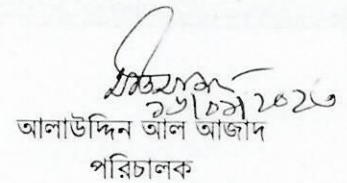 ১৬/০৯/২০২৩
আলাউদ্দিন আল আজাদ
পরিচালক